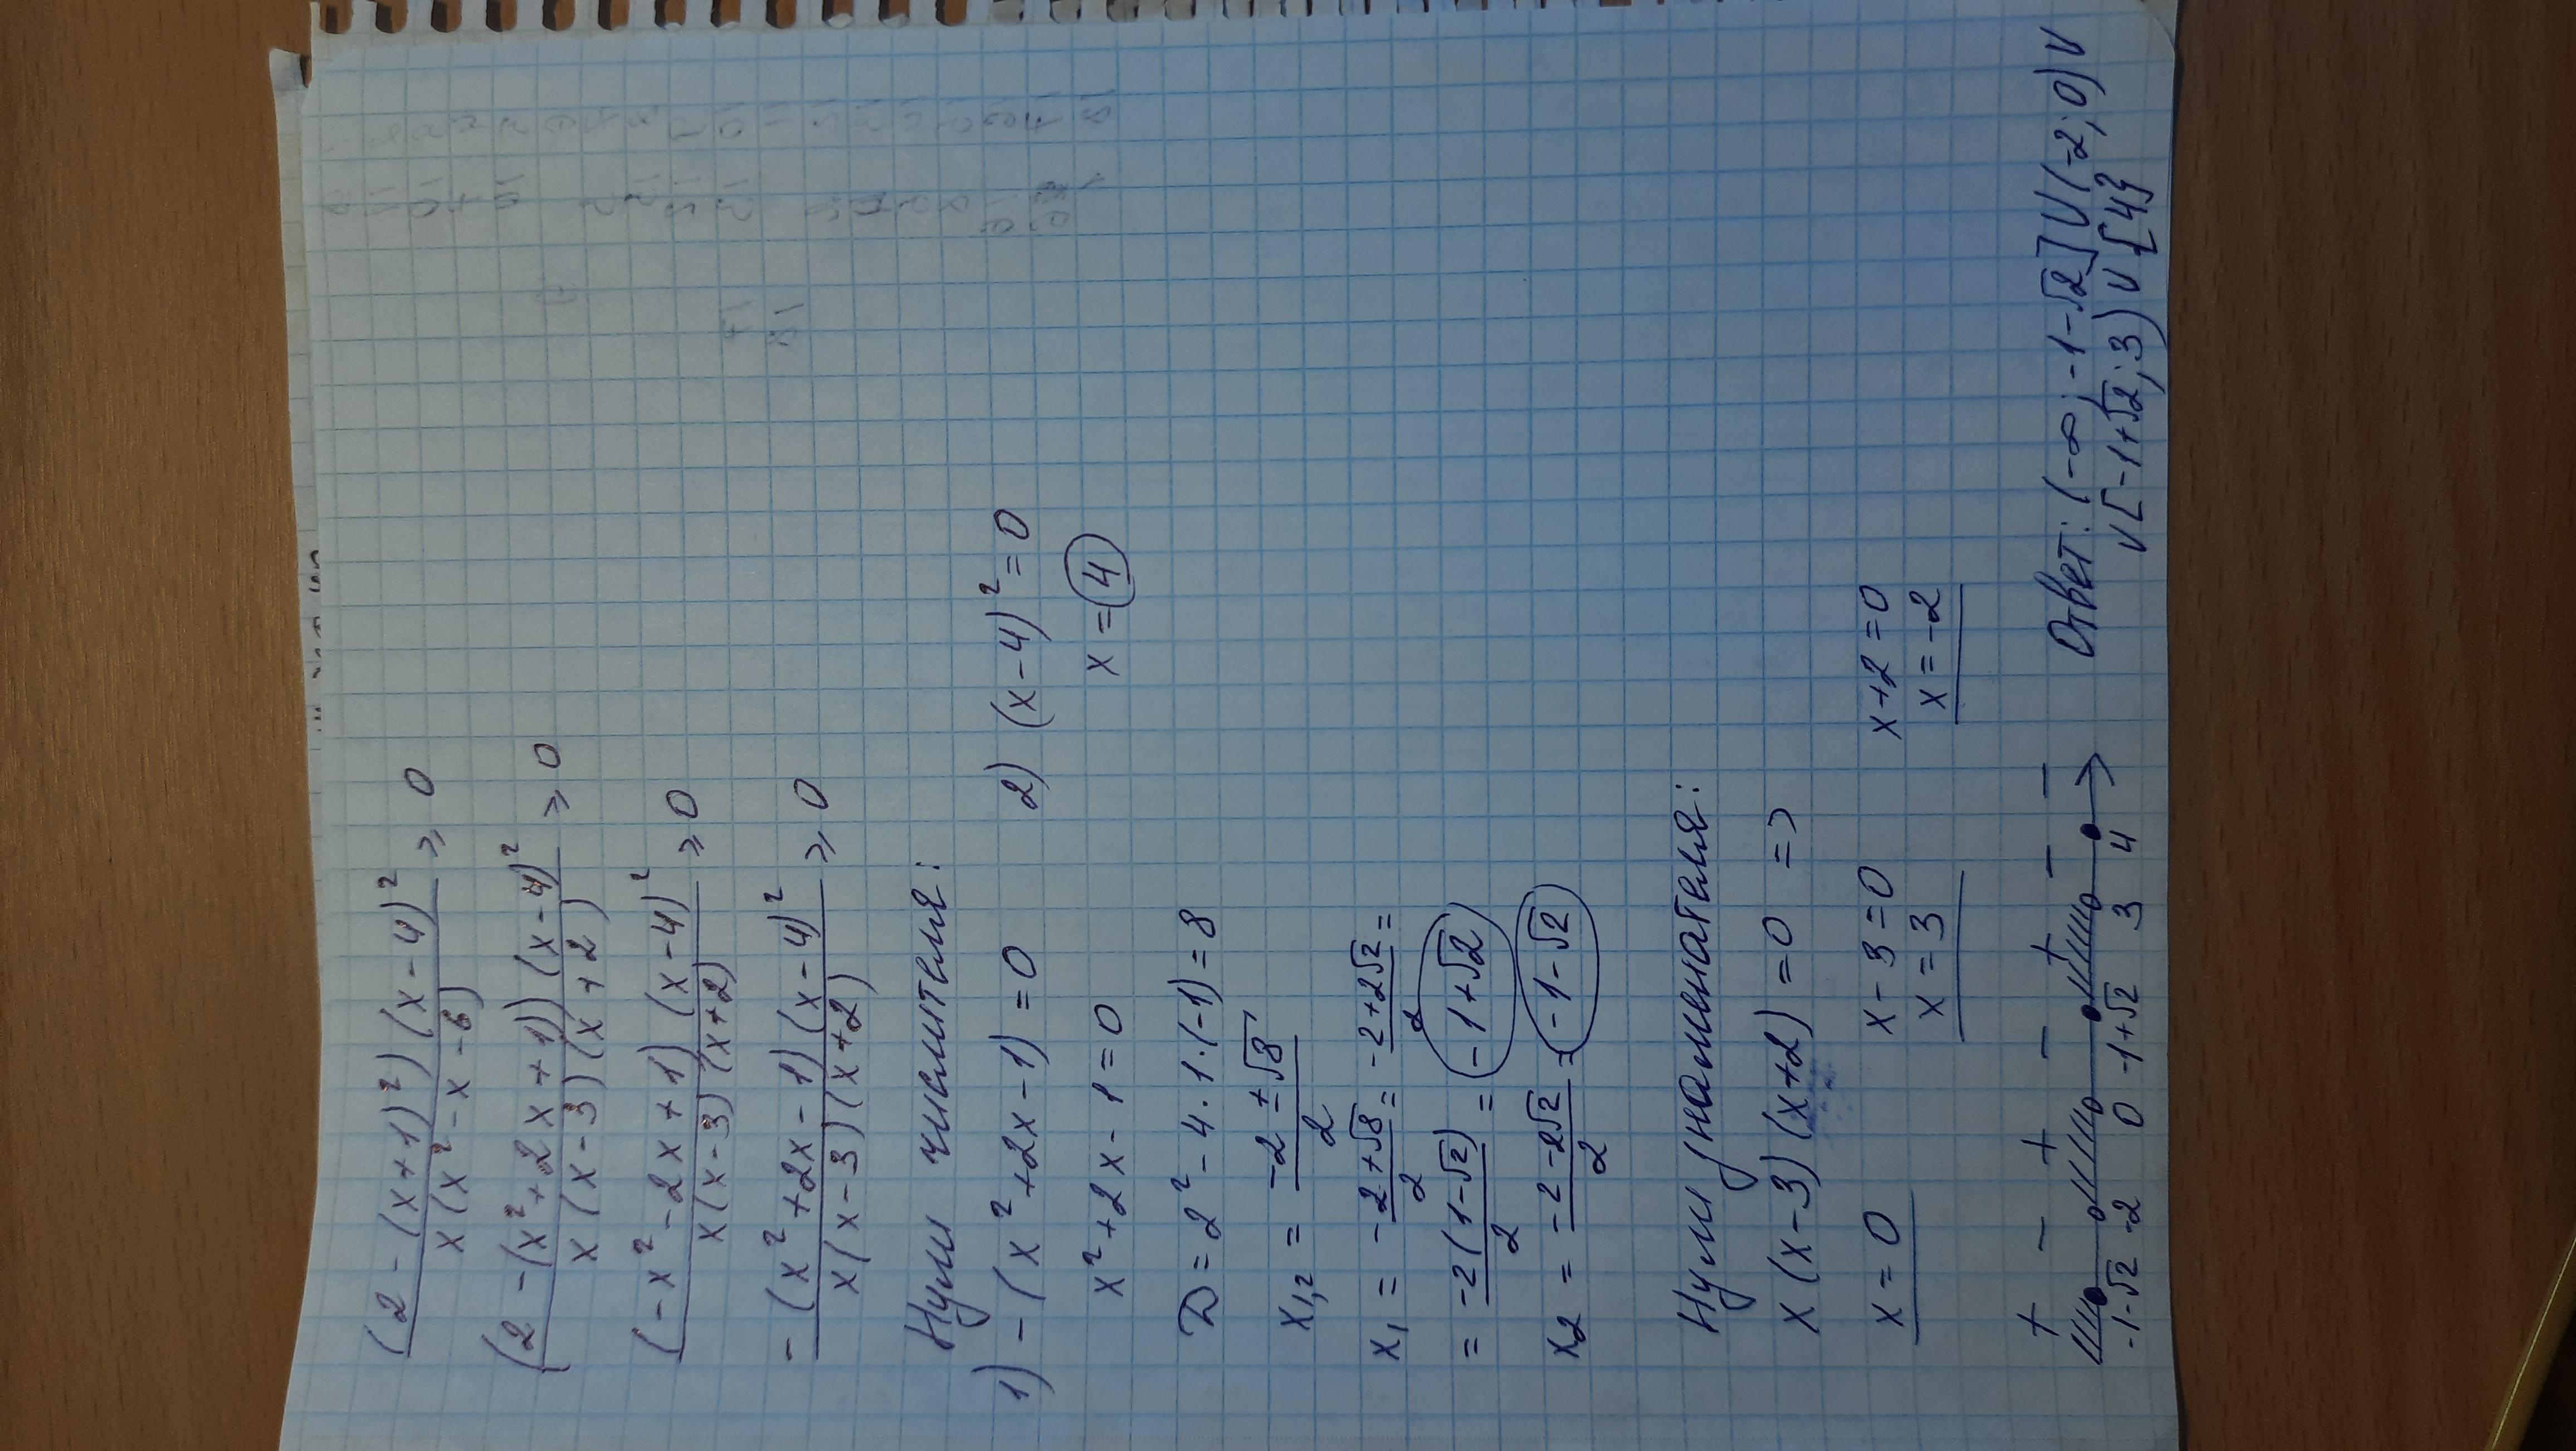 (2 - (x+1)²)(x-4)² / x(x² - x - 6) ⩾ 0
(2 - (x² + 2x + 1))(x-4)² / x(x-3)(x+2) ⩾ 0
(-x² - 2x + 1)(x-4)² / x(x-3)(x+2) ⩾ 0
-(x² + 2x - 1)(x-4)² / x(x-3)(x+2) ⩾ 0
Нули числителя:
1) -(x² + 2x - 1) = 0 2) (x-4)² = 0
x² + 2x - 1 = 0 x = 4
D = 2² - 4·1·(-1) = 8
x₁,₂ = -2 ± √8 / 2
x₁ = -2 + √8 / 2 = -2 + 2√2 / 2 =
= -2(1-√2) / 2 = -1+√2
x₂ = -2 - 2√2 / 2 = -1-√2
Нули знаменателя:
x(x-3)(x+2) = 0 =>
x = 0 x - 3 = 0 x+2 = 0
x = 3 x = -2
+ - + - + - -
-1-√2 -2 0 -1+√2 3 4
Ответ: (-∞; -1-√2] ∪ (-2; 0) ∪
∪ [-1+√2; 3) ∪ {4}